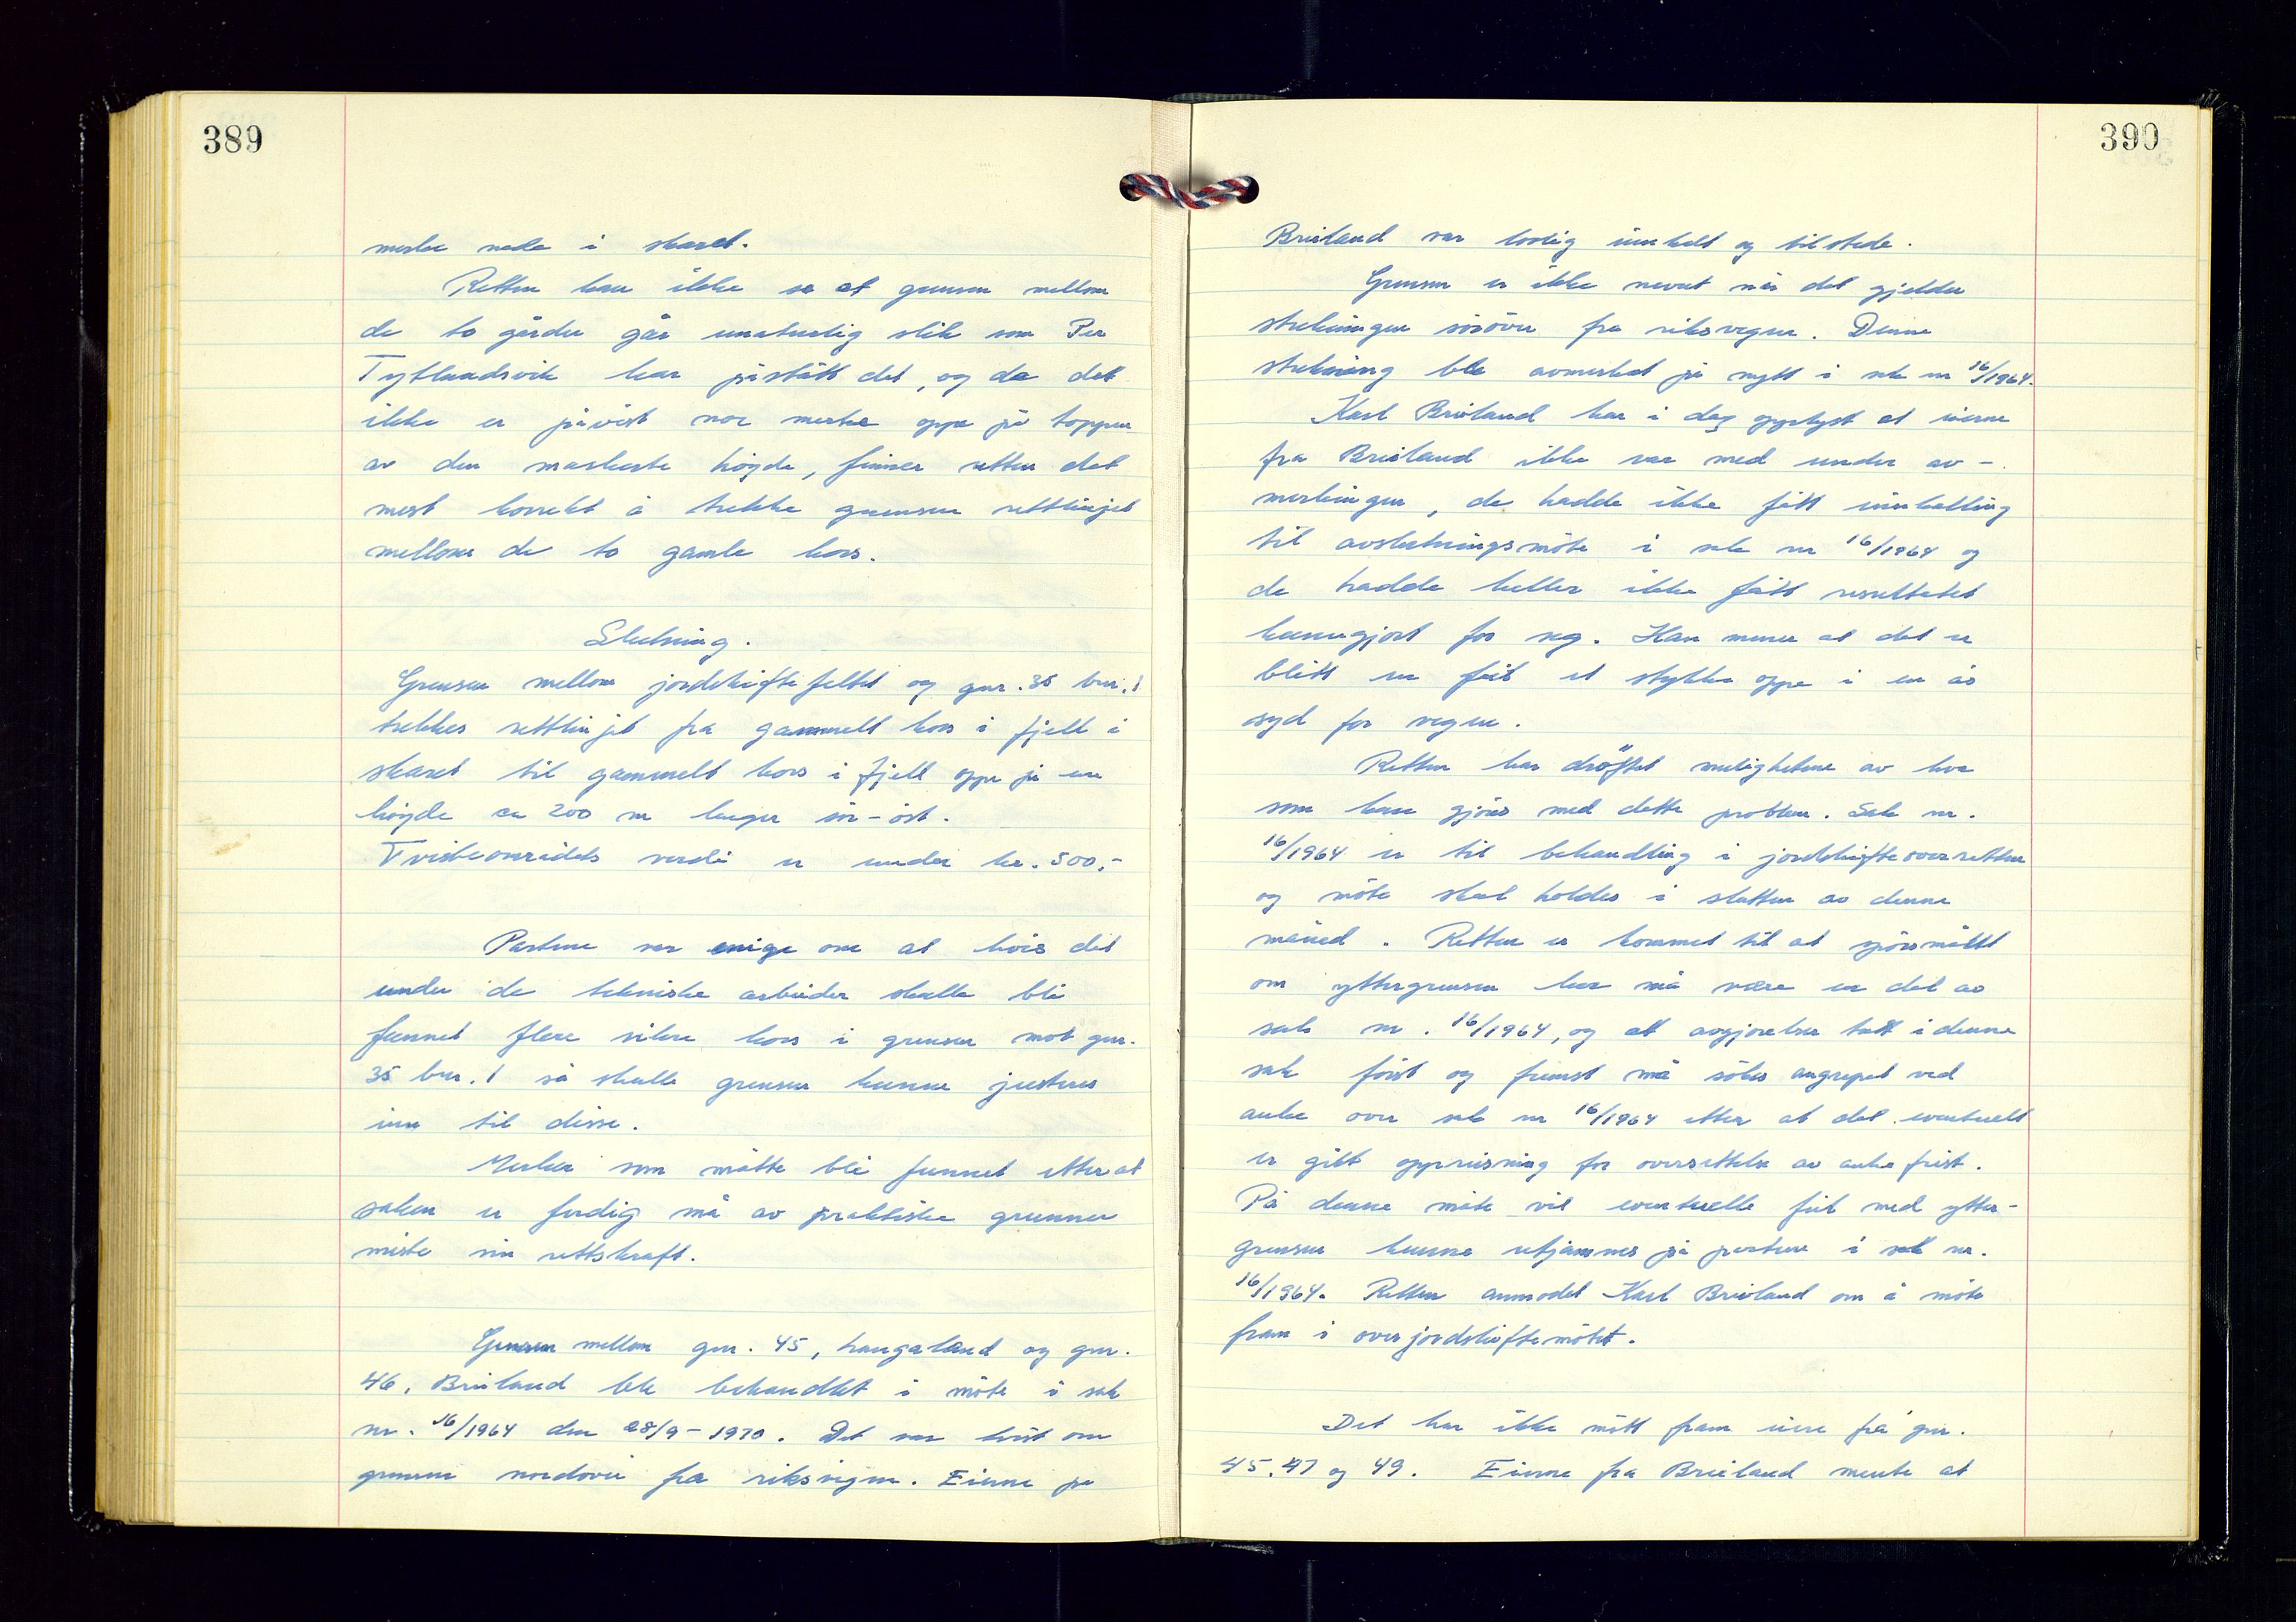 389
merke nede i skaret.
Retten kan ikke se at grensen mellom
de to gårder går unaturlig slik som Per
Tytlandsvik har påstått det, og da det
ikke er påvist noe merke oppe på toppen
av den markerte høgde, finner retten det
mest korrekt å trekke grensen rettlinjet
mellom de to gamle kors.
Slutning.
Grensen mellom jordskiftefeltet og gnr. 35 bnr. 1
trekkes rettlinjet fra gammelt kors i fjell i
skaret til gammelt kors i fjell oppe på en
høgde ca 200 m lenger sör-öst.
Tvisteområdets verdi er under kr. 500,-
Partene var enige om at hvis det
under de tekniske arbeider skulle bli
funnet flere sikre kors i grensen mot gnr.
35 bnr. 1 så skulle grensen kunne justeres
inn til disse.
Merker som måtte bli funnet etter at
saken er ferdig må av praktiske grunner
miste sin rettskraft.
Grensen mellom gnr. 45, Haugaland og gnr.
46, Breiland ble behandlet i möte i sak
nr. 16/1964 den 28/9-1970. Det var tvist om
grensen nordover fra riksvegen. Eierne på
390
Breiland var lovlig innkalt og tilstede.
Grensen er ikke nevnt når det gjelder
strekningen sörover fra riksvegen. Denne
strekning ble avmerket på nytt i sak nr 16/1964.
Karl Breiland har i dag opplyst at eierne
fra Breiland ikke var med under av-
merkingen, de hadde ikke fått innkalling
til avslutningsmöte i sak nr 16/1964 og
de hadde heller ikke fått resultatet
kunngjort for seg. Han mener at det er
blitt en feil et stykke oppe i en ås
syd for vegen.
Retten har dröftet mulighetene av hva
som kan gjöres med dette problem. Sak nr.
16/1964 er til behandling i jordskifteoverretten
og möte skal holdes i slutten av denne
måned. Retten er kommet til at spörsmålet
om yttergrensen her må være en del av
sak nr. 16/1964, og at avgjörelser tatt i denne
sak först og fremst må sökes angrepet ved
anke over sak nr 16/1964 etter at det eventuelt
er gitt oppreisning for oversittelse av ankefrist.
På denne måte vil eventuelle feil med ytter-
grensen kunne utjamnes på partene i sak nr.
16/1964. Retten anmodet Karl Breiland om å möte
fram i overjordskiftemötet.
Det har ikke mött fram eiere fra gnr.
45, 47 og 49. Eierne fra Breiland mente at